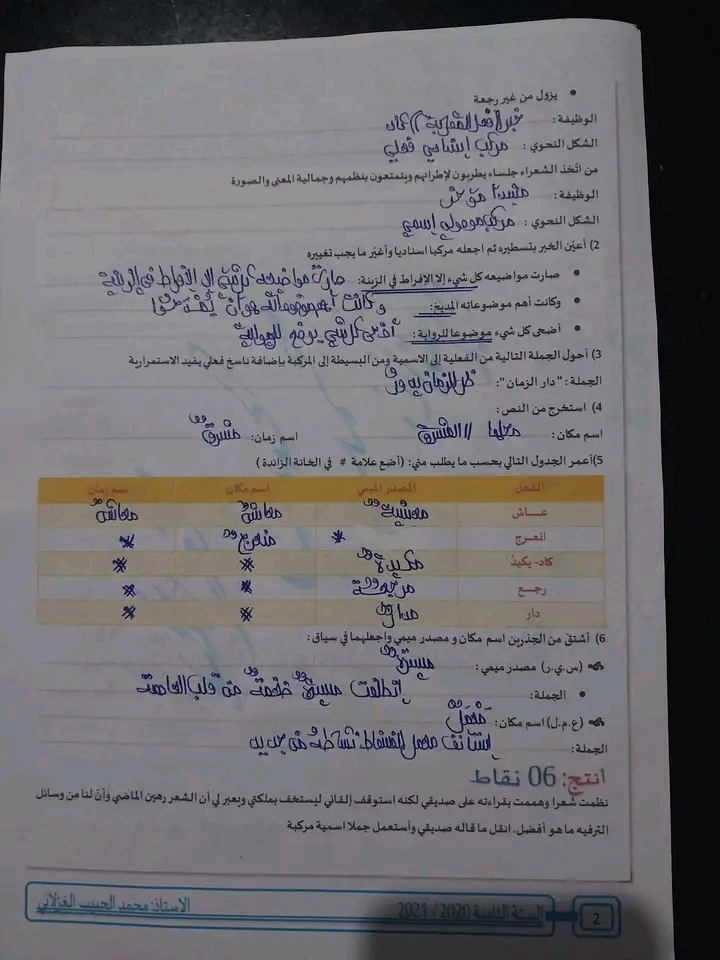 • يزول من غير رجعة
الوظيفة: خبر (الفعل المقاربة) كاد
الشكل النحوي: مركب إسنادي فعلي
من اتّخذ الشعراء جلساء يطربون لإطرابهم ويتمتعون بنظمهم وجمالية المعنى والصورة
الوظيفة: مبتدأ مؤخر
الشكل النحوي: مركب موصولي إسمي
2) أعيّن الخبر بتسطيره ثم اجعله مركبا اسناديا وأغيّر ما يجب تغييره
• صارت مواضيعه كل شيء إلا الإفراط في الزينة: صارت مواضيعه إلا الإفراط في الزينة
• وكانت أهم موضوعاته المديح: وكانت أهم موضوعاته هو أن
• أضحى كل شيء موضوعا للرواية: أضحى كل شيء
3) أحول الجملة التالية من الفعلية إلى الاسمية ومن البسيطة إلى المركبة بإضافة ناسخ فعلي يفيد الاستمرارية
الجملة: "دار الزمان": ظل الزمان يدور
4) استخرج من النص:
اسم مكان: // المشرق اسم زمان: مشرق
5) أعمر الجدول التالي بحسب ما يطلب مني: (أضع علامة # في الخانة الزائدة)
الفعل المصدر الميمي اسم مكان اسم زمان
عـاش معيشة معاش معاش
انعرج * منعرج *
كاد- يكيد مكيدة * *
رجـع * *
دار مدار * *
6) أشتق من الجذرين اسم مكان و مصدر ميمي وأجعلهما في سياق:
(س.ي.ر) مصدر ميمي: مسيرة
• الجملة: إنطلقت مسيرة ضخمة من قلب العاصمة
(ع.م.ل) اسم مكان: معمل
الجملة: إستأنف معمل نشاطه من جديد
أنتج: 06 نقاط
نظمت شعرا وهممت بقراءته على صديقي لكنه استوقف إلقائي ليستخف بملكتي ويعبر لي أن الشعر رهين الماضي وأنّ لنا من وسائل
الترفيه ما هو أفضل. انقل ما قاله صديقي وأستعمل جملا اسمية مركبة
2 السنة الثامنة 2020 / 2021 الأستاذ: محمد الحبيب الغزلاني